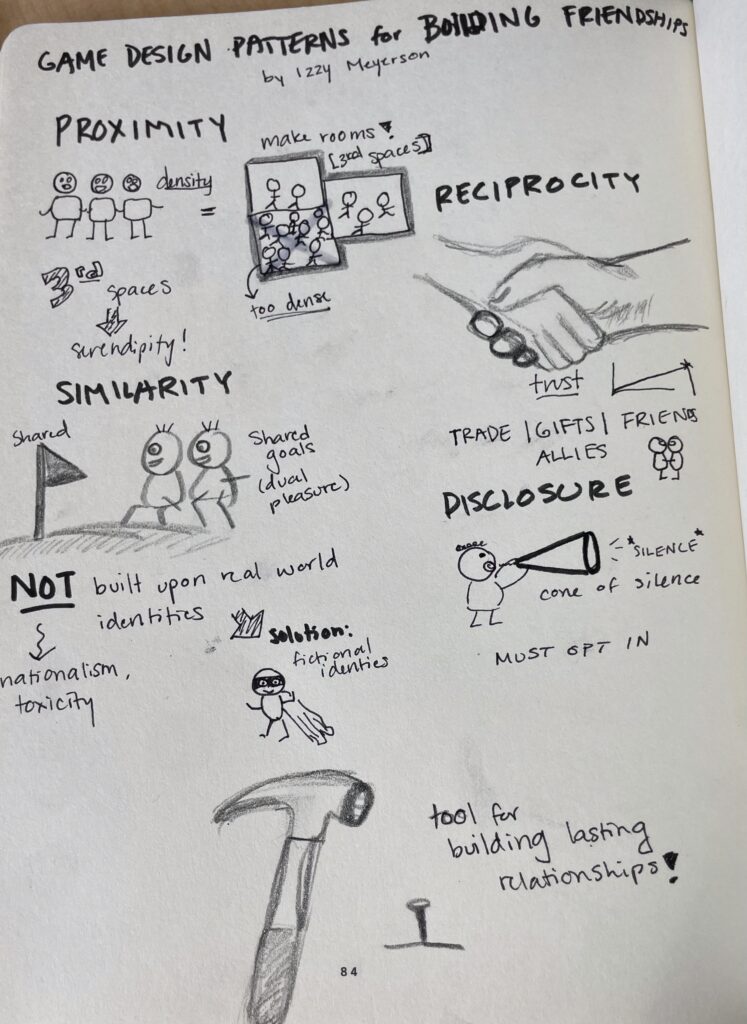 GAME DESIGN PATTERNS for BUILDING FRIENDSHIPS
by Izzy Meyerson
PROXIMITY
density
=
make rooms!
[3rd spaces]
too dense
3rd spaces
serendipity!
RECIPROCITY
trust
TRADE | GIFTS | FRIENDS
ALLIES
SIMILARITY
Shared
Shared
goals
(dual
pleasure)
NOT built upon real world
identities
nationalism,
toxicity
solution:
fictional
identies
DISCLOSURE
*SILENCE*
cone of silence
MUST OPT IN
tool for
building lasting
relationships!
84